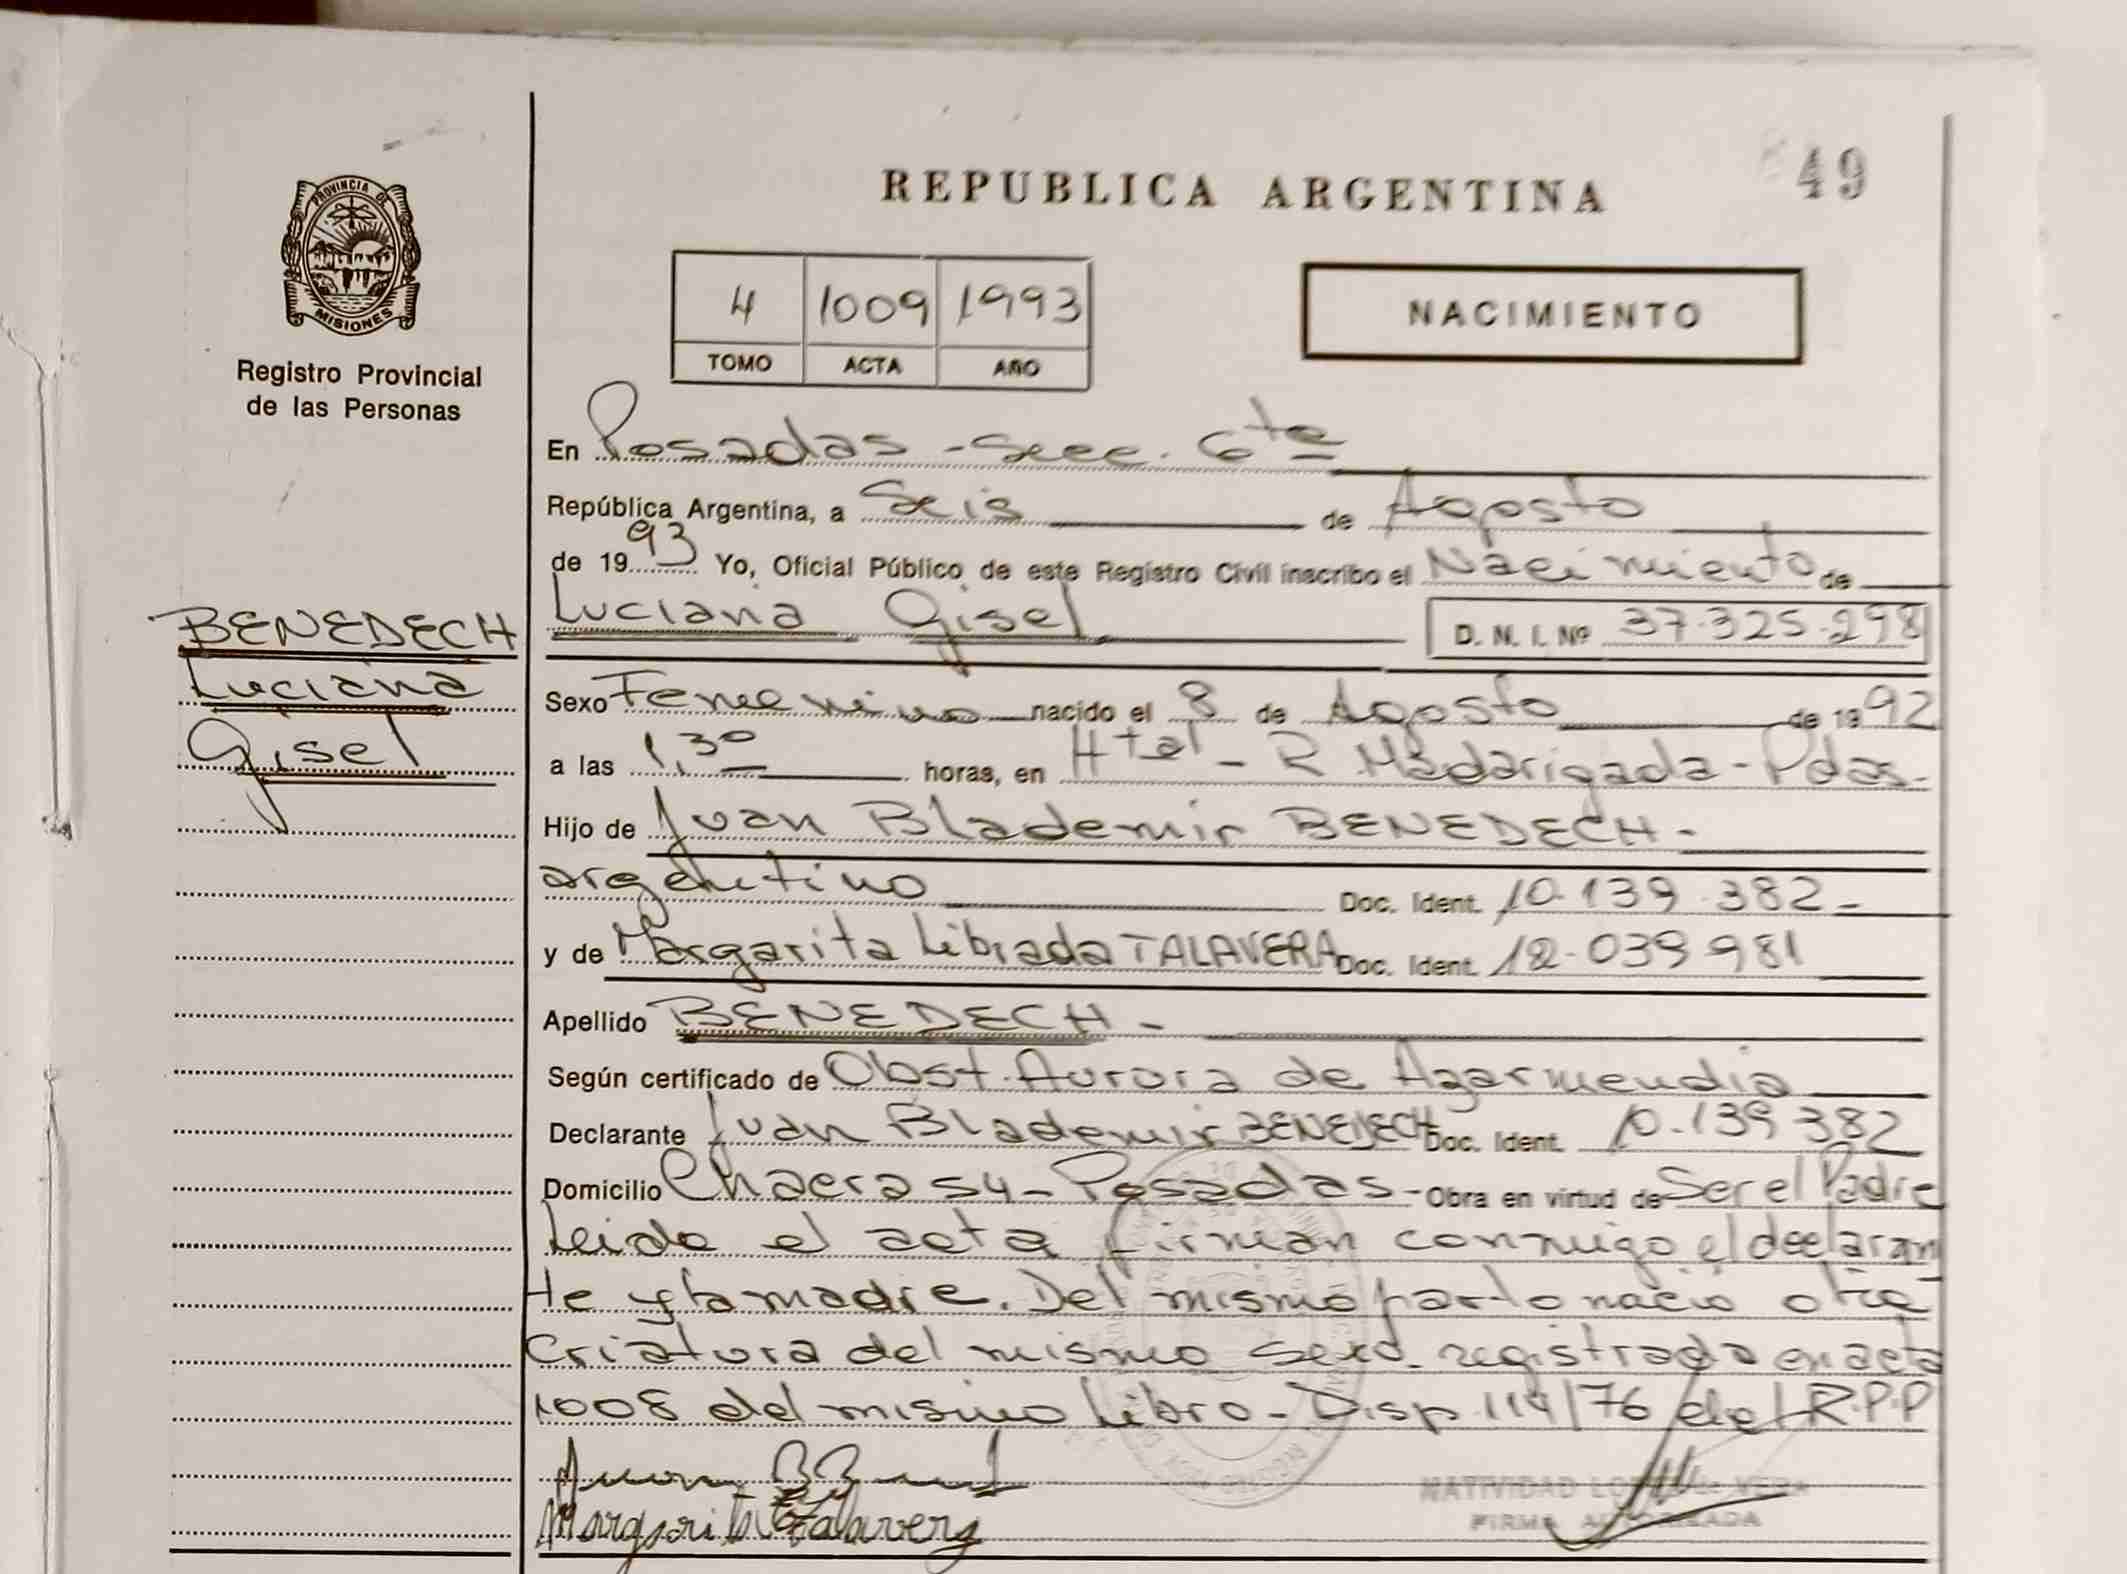 49
REPUBLICA ARGENTINA
PROVINCIA DE
MISIONES
Registro Provincial
de las Personas
4 1009 1993
TOMO ACTA AÑO
NACIMIENTO
En Posadas - Secc. 6ta
República Argentina, a Seis de Agosto
de 1993 Yo, Oficial Público de este Registro Civil inscribo el Nacimiento de
BENEDECH
Luciana
Gisel
Luciana Gisel D. N. I. Nº 37.325.298
Sexo Femenino nacido el 8 de Agosto de 1992
a las 1,30 horas, en Htal - R Madarigada - Pdas.
Hijo de Juan Blademir BENEDECH -
argentino Doc. Ident. 10.139.382 -
y de Margarita Librada TALAVERA Doc. Ident. 12.039.981
Apellido BENEDECH -
Según certificado de Obst. Aurora de Agarmendia
Declarante Juan Blademir BENEDECH Doc. Ident. 10.139.382
Domicilio Chacra 54 - Posadas - Obra en virtud de Ser el Padre
Leida el acta firman conmigo el declaran
te y la madre. Del mismo parto nació otra
criatura del mismo sexo registrada en acta
1008 del mismo Libro - Disp. 114/76 del R.P.P
Margarita Talavera
NATIVIDAD de VERA
FIRMA AUTORIZADA